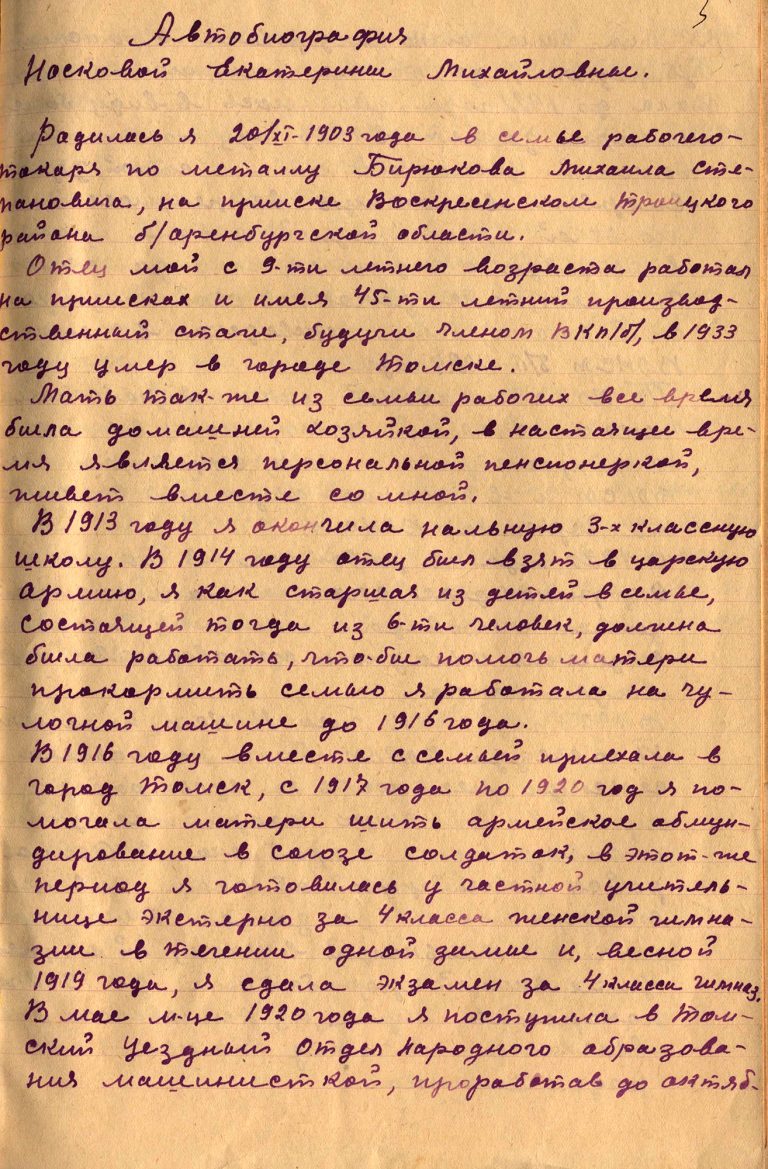 5
Автобиография
Носковой Екатерины Михайловны.
Радилась я 20/XI-1903 года в семье рабочего-
токаря по металлу Бирюкова Михаила Сте-
пановича, на прииске Воскресенском Троицкого
района б/аренбургской области.
Отец мой с 9-ти летнего возраста работал
на приисках и имея 45-ти летний производ-
ственный стаж, будучи членом ВКП/б/, в 1933
году умер в городе Томске.
Мать так-же из семьи рабочих все время
была домашней хозяйкой, в настоящее вре-
мя является персональной пенсионеркой,
живет вместе со мной.
В 1913 году я окончила начальную 3-х классную
школу. В 1914 году отец был взят в царскую
армию, я как старшая из детей в семье,
состоящей тогда из 6-ти человек, должна
была работать, что-бы помочь матери
прокормить семью я работала на чу-
лочной машине до 1916 года.
В 1916 году вместе с семьей приехала в
город Томск, с 1917 года по 1920 год я по-
могала матери шить армейское обмун-
дирование в союзе солдаток, в этот-же
период я готовилась у частной учитель-
нице экстерно за 4 класса женской гимна-
зии в течении одной зимы и, весной
1919 года, я сдала экзамен за 4 класса гимназ.
В мае м-це 1920 года я поступила в Том-
ский Уездный Отдел Народного образова-
ния машинисткой, проработав до октяб-